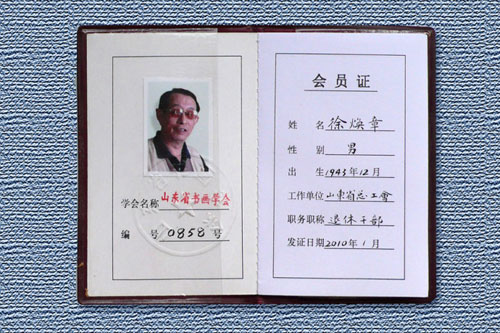 学会名称 山东省书画学会
编 号 0858 号
会员证
姓 名 徐焕章
性 别 男
出 生 1943年12月
工作单位 山东省总工會
职务职称 退休干部
发证日期 2010年1月